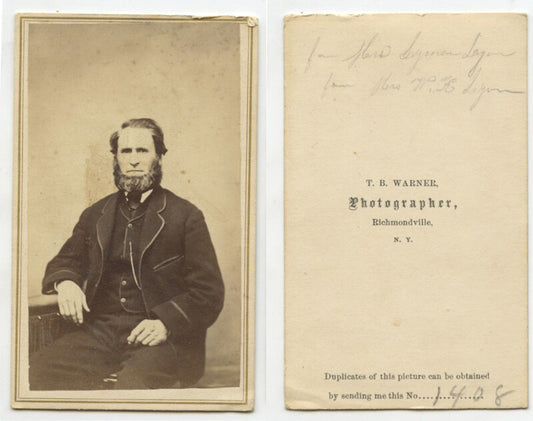 for Mrs Lyman Lyon
from Mrs W. H Lyon
T. B. WARNER,
Photographer,
Richmondville,
N. Y.
Duplicates of this picture can be obtained
by sending me this No....1408